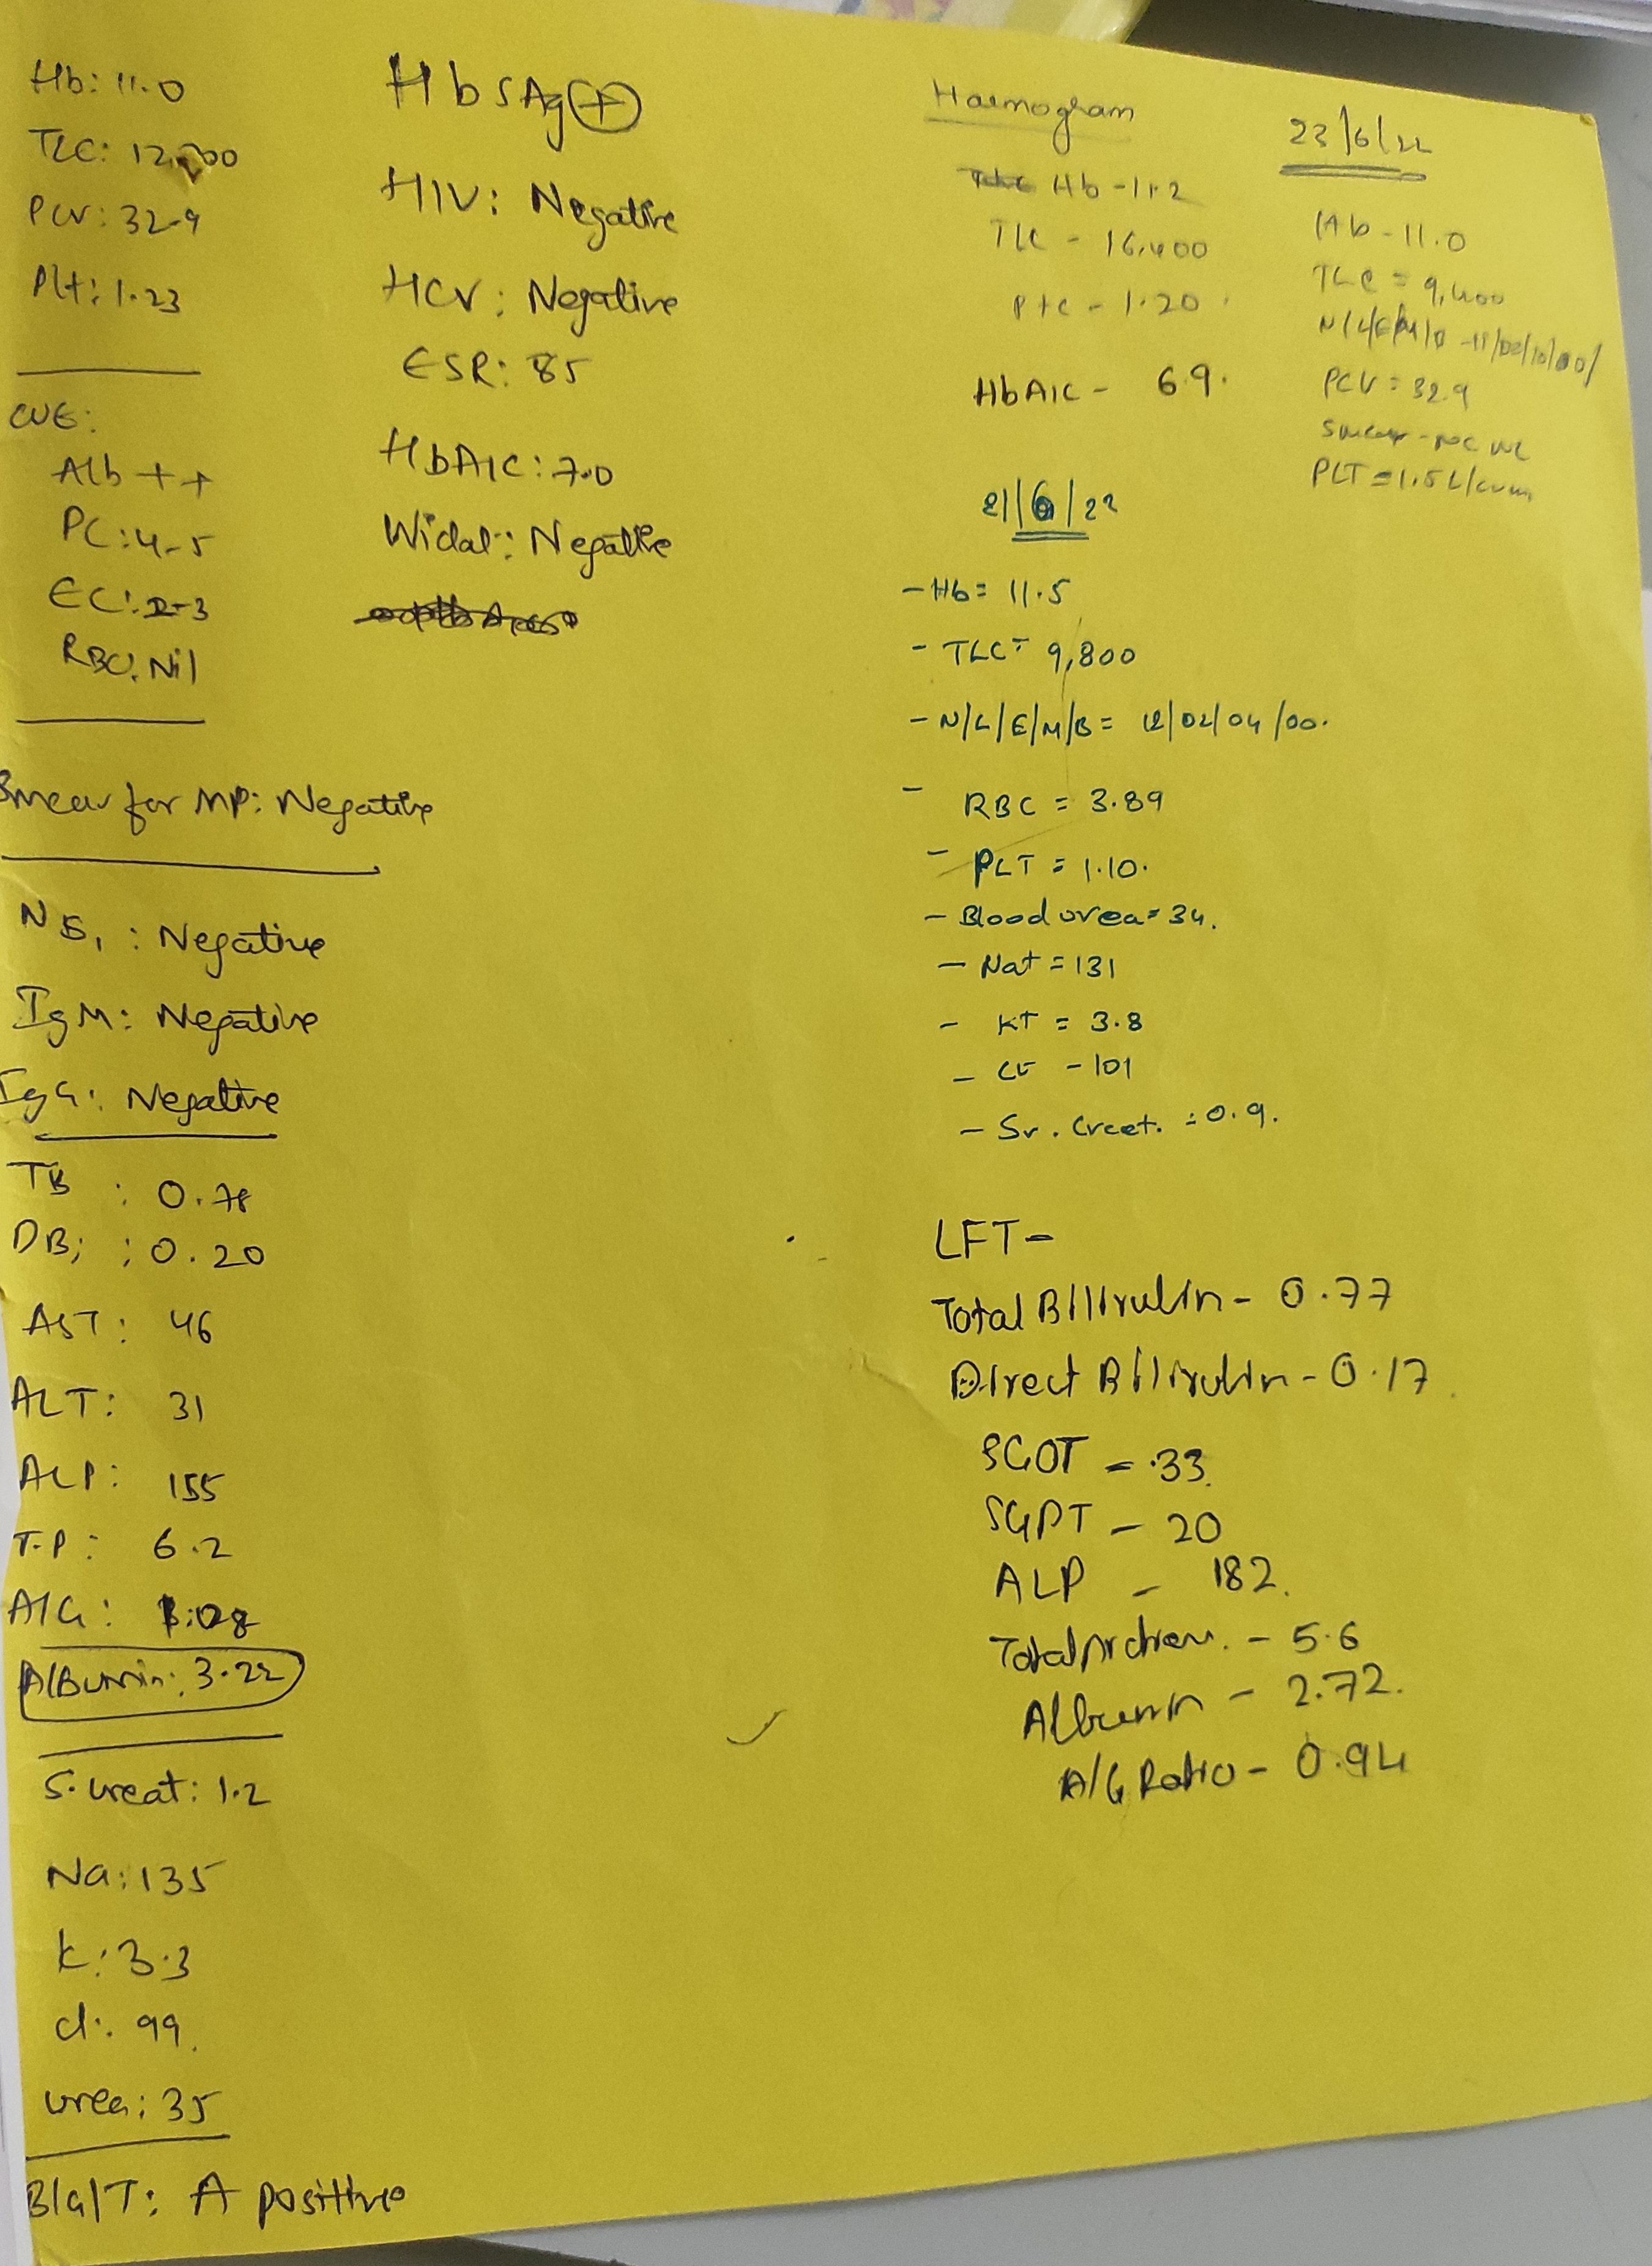 Hb: 11.0
TLC: 12,
PCV: 32.9
Plt: 1.23
CUE:
Alb ++
PC: 4-5
EC: 2-3
RBC: Nil
Smear for MP: Negative
NS1 : Negative
IgM: Negative
IgG: Negative
TB : 0.78
DB; : 0.20
AST: 46
ALT: 31
ALP: 155
T.P: 6.2
A/G: 1.08
Albumin: 3.22
S. creat: 1.2
Na: 135
K: 3.3
cl: 99.
urea: 35
B/G/T: A positive
HbsAg (+)
HIV: Negative
HCV: Negative
ESR: 85
HbA1C: 7.0
Widal: Negative
Haemogram
Hb - 11.2
TLC - 16,400
Ptc - 1.20
HbA1C - 6.9.
21/6/22
- Hb = 11.5
- TLC = 9,800
- N/L/E/M/B = 12/02/04/00.
- RBC = 3.89
- PLT = 1.10.
- Blood urea = 34.
- Na+ = 131
- K+ = 3.8
- Cl- - 101
- Sr. Creat. = 0.9.
LFT -
Total Bilirubin - 0.77
Direct Bilirubin - 0.17
SGOT - 33.
SGPT - 20
ALP - 182.
Total protien. - 5.6
Albumin - 2.72.
A/G Ratio - 0.94
23/6/22
Hb - 11.0
TLC = 9,400
N/L/E/M/B
PCV = 32.9
Smear
PLT = 1.5 L/cumm